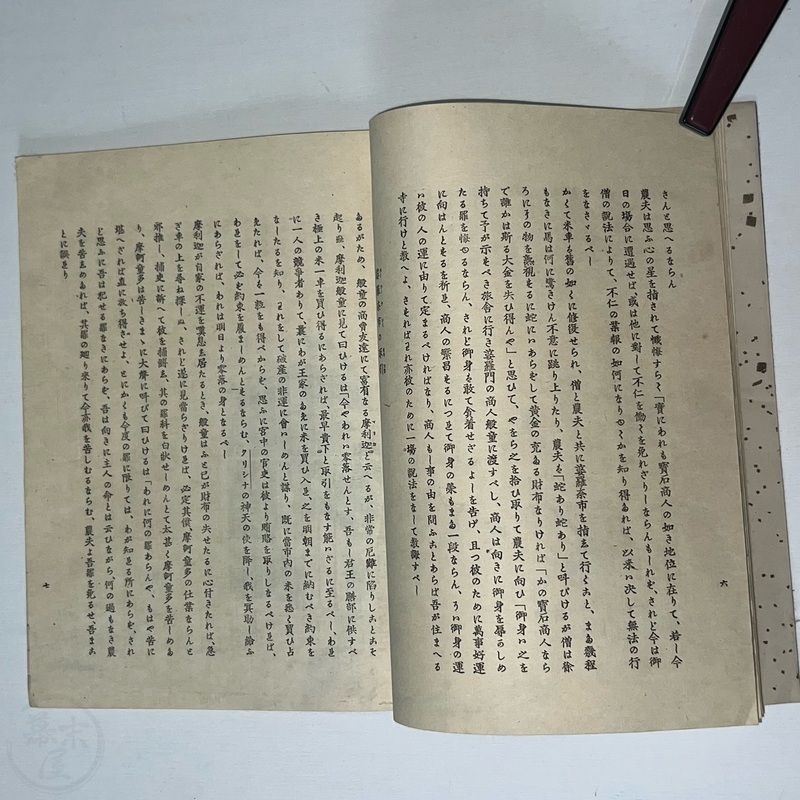 さんと思へるならん
農夫は思ふ心の星を指されて懺悔すらく「實にわれも寶石商人の如き地位に在りて、若し今
日の場合に遭遇せば、或は他に對して不仁を働くを免れざりしならんもしれず、されど今は御
僧の說法によりて、不仁の業報の如何になりゆくかを知り得たれば、以來は決して無法の行
をなさゞるべし
かくて米車も舊の如くに修復せられ、僧と農夫と共に婆羅奈市を指して行くほど、まだ幾程
もなきに馬は何に驚きけん不意に跳り上りたり、農夫も「蛇あり蛇あり」と叫びけるが僧は徐
ろにその物を熟視するに蛇にはあらずして黃金の充ちたる財布なりければ「かの寶石商人なら
で誰かは斯る大金を失ひ得んや」と思ひて、やをら之を拾ひ取りて農夫に向ひ「御身は之を
持ちて予が示すべき旅舍に行き婆羅門の商人般童に渡すべし、商人は向きに御身を辱かしめ
たる罪を悔ゆるならん、されど御身も敢て貪着せざるよしを告げ、且つ彼のために萬事好運
に向はんことを祈れ、商人の繁昌するにつれて御身の榮もまた一段ならん、そは御身の運
は彼の人の運に由りて定まるべければなり、商人もし事の由を問ふことあらば吾が住まへる
寺に行けと敎へよ、さすればわれ亦彼のために一場の說法をなして敎誨すべし
六
あるがため、般童の商賣友達にて富有なる摩利迦と云へるが、非常の厄難に陷りしことこそ
起りぬ、摩利迦般童に見て曰ひけるは「今やわれは零落せんとす、吾もし君王の膳部に供すべ
き極上の米一車を買ひ得るにあらざれば、最早貴下と取引をもなす能はざるに至るべし、わ
に一人の競爭者ありて、曩にわが王家のために米を買ひ入れ、之を明朝までに納むべき約束を
なしたるを知り、われをして破産の非運に會はしめんと謀り、既に當市內の米を悉く買ひ占
えたれば、今は一粒をも得べからず、思ふに宮中の官吏は彼より賄賂を取りしなるべければ、
われをして必ず約束を履ましめんとするならむ、クリシナの神天の使を降し、我を冥助し給ふ
にあらざれば、われは明日より零落の身となるべし
摩利迦が自家の不運を嘆息し居たるとき、般童はふと己が財布の失せたるに心付きたれば、急
ぎ車の上を尋ね探しぬ、されど遂に見當らざりければ、必定其僕、摩訶童多の仕業ならんと
邪推し、捕吏に訴へて彼を捕縛し、其の罪科を白狀せしめんとて太甚く摩訶童多を苦しめた
り、摩訶童多は苦しさまゝに大聲に叫びて曰ひけるは「われに何の罪あらんや、もはや苦に
堪へざれば直に放ち得させよ、とにかくも今度の罪に限りては、わが知れる所にあらず、され
ど思ふに吾は犯せる罪なきにあらず、吾は向きに主人の命とは云ひながら、何の過もなき農
夫を苦しめたれば、其罪の廻り來りて今亦我を苦しむるならむ、農夫よ吾罪を免るせ、吾まこ
とに誤れり
七